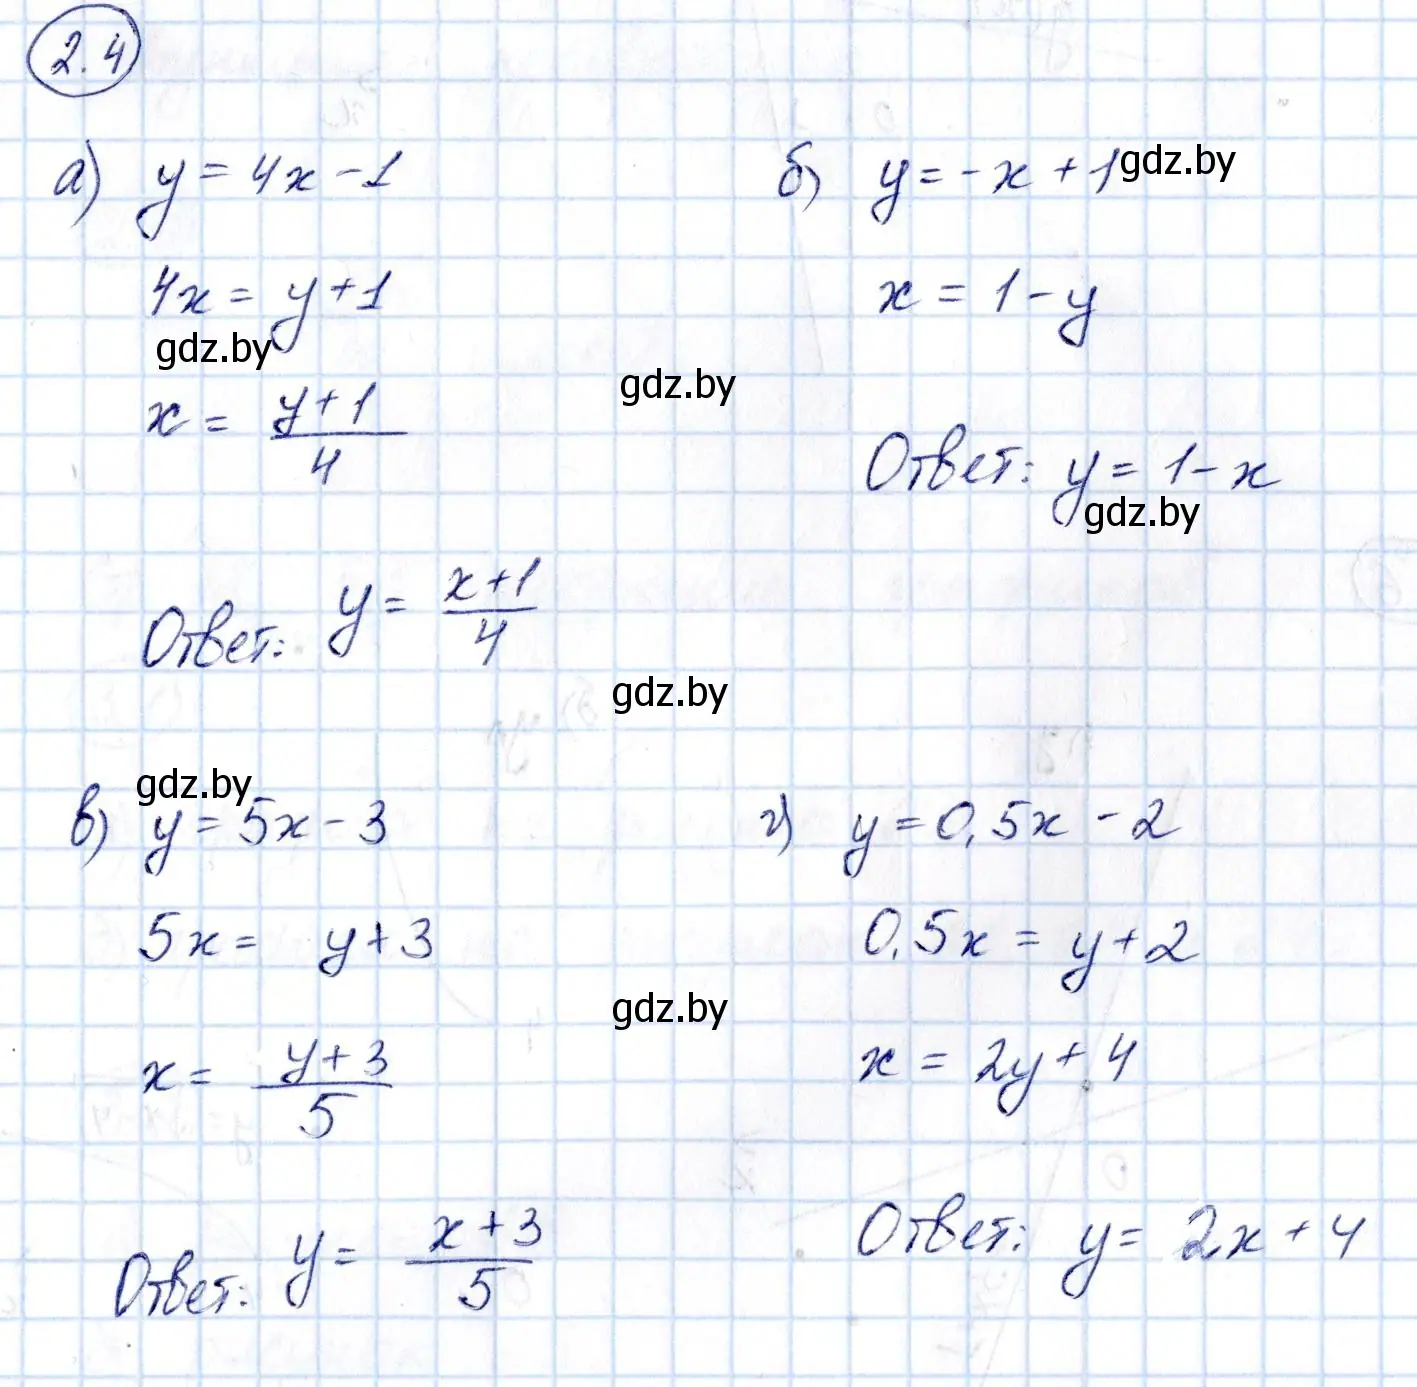 2.4
а) y = 4x - 1
4x = y + 1
gdz.by
x = (y + 1)/4
Ответ: y = (x + 1)/4
б) y = -x + 1 gdz.by
x = 1 - y
gdz.by
Ответ: y = 1 - x
gdz.by
gdz.by
gdz.by
в) y = 5x - 3
5x = y + 3
x = (y + 3)/5
Ответ: y = (x + 3)/5
г) y = 0,5x - 2
0,5x = y + 2
gdz.by
x = 2y + 4
Ответ: y = 2x + 4